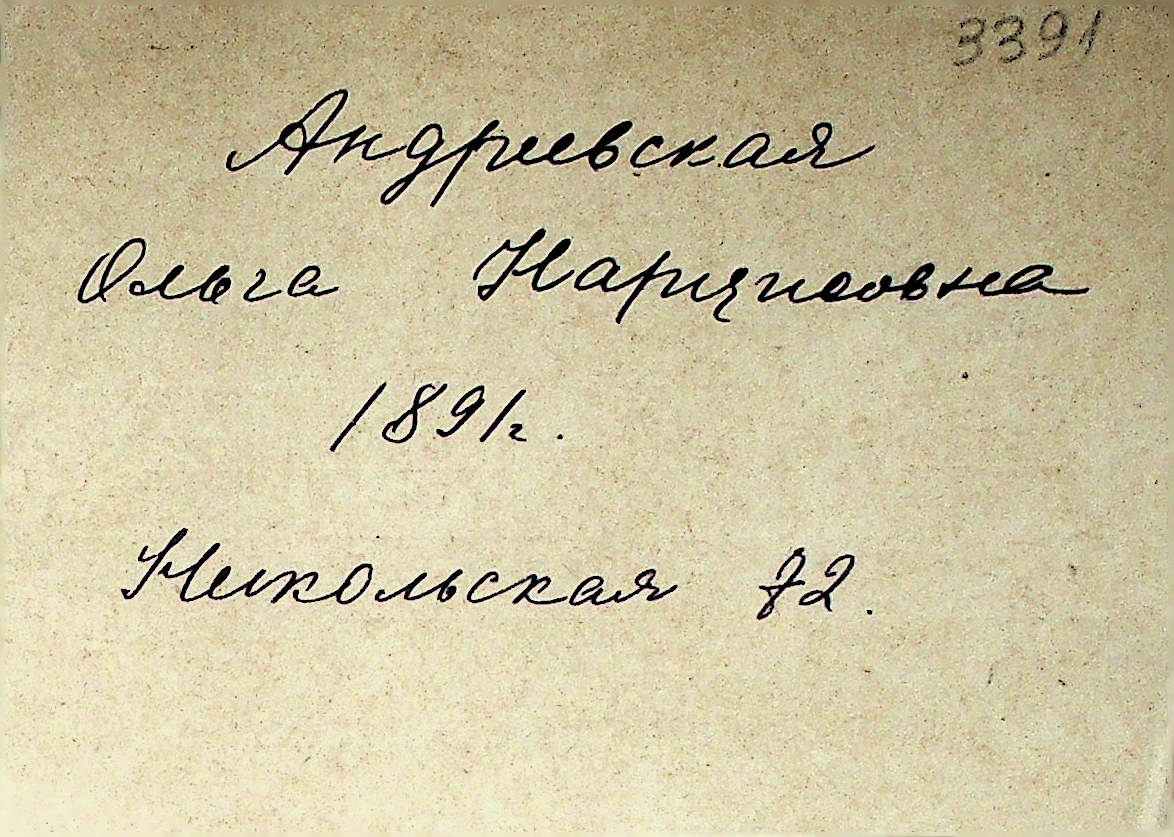 3391
Андриевская
Ольга Нарцисовна
1891г.
Никольская 72.